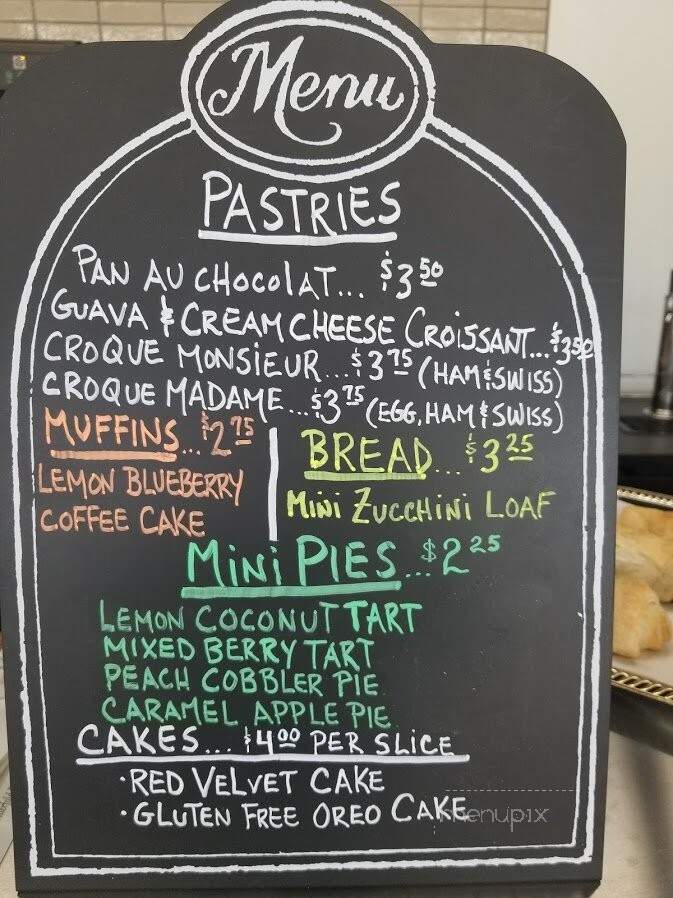 Menu
PASTRIES
PAN AU CHOCOLAT... $3 50
GUAVA & CREAM CHEESE CROISSANT... $3 50
CROQUE MONSIEUR... $3 75 (HAM & SWISS)
CROQUE MADAME... $3 75 (EGG, HAM & SWISS)
MUFFINS... $2 75
LEMON BLUEBERRY
COFFEE CAKE
BREAD... $3 25
MINI ZUCCHINI LOAF
MINI PIES... $2 25
LEMON COCONUT TART
MIXED BERRY TART
PEACH COBBLER PIE
CARAMEL APPLE PIE
CAKES... $4 00 PER SLICE
• RED VELVET CAKE
• GLUTEN FREE OREO CAKE
menupix